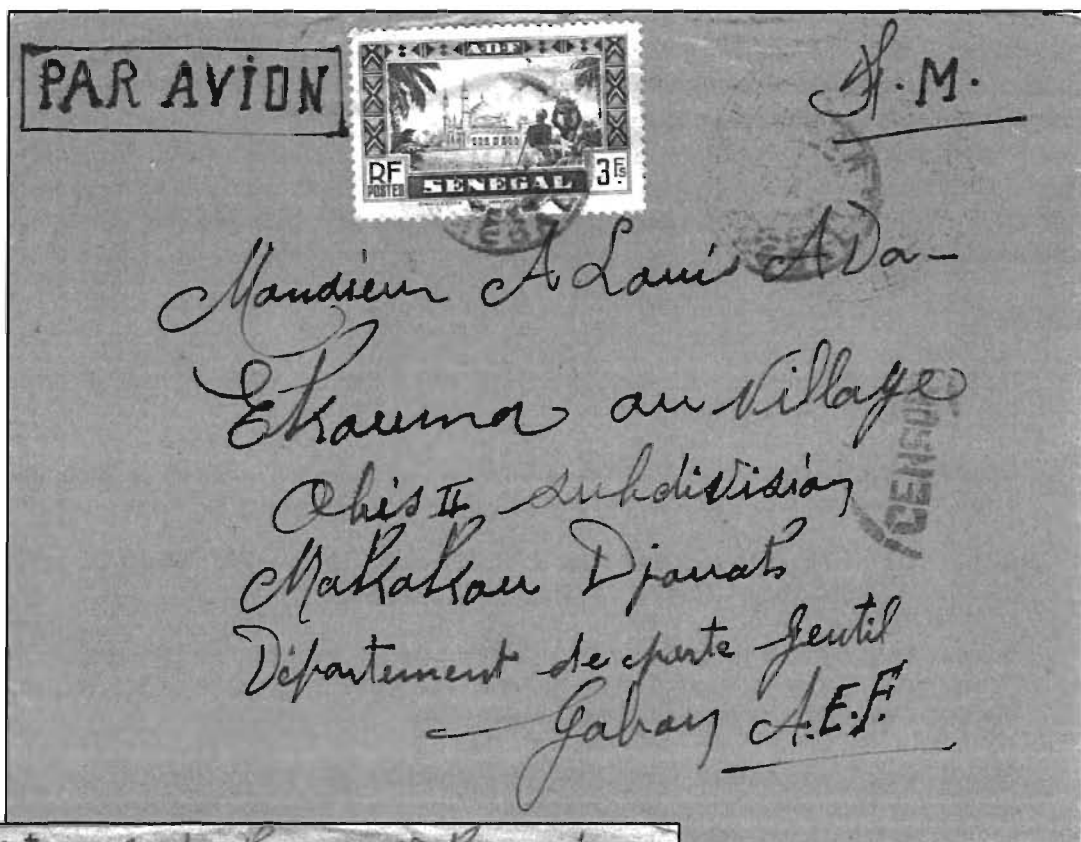 PAR AVION
A.O.F
RF
POSTES
SENEGAL
3Fs
F.M.
Mondieur A Louis ADa-
Ekouma au Village
Obis II subdivision
Makokou Djouab
CENSU
Département de porte Gentil
Gabon A.E.F.